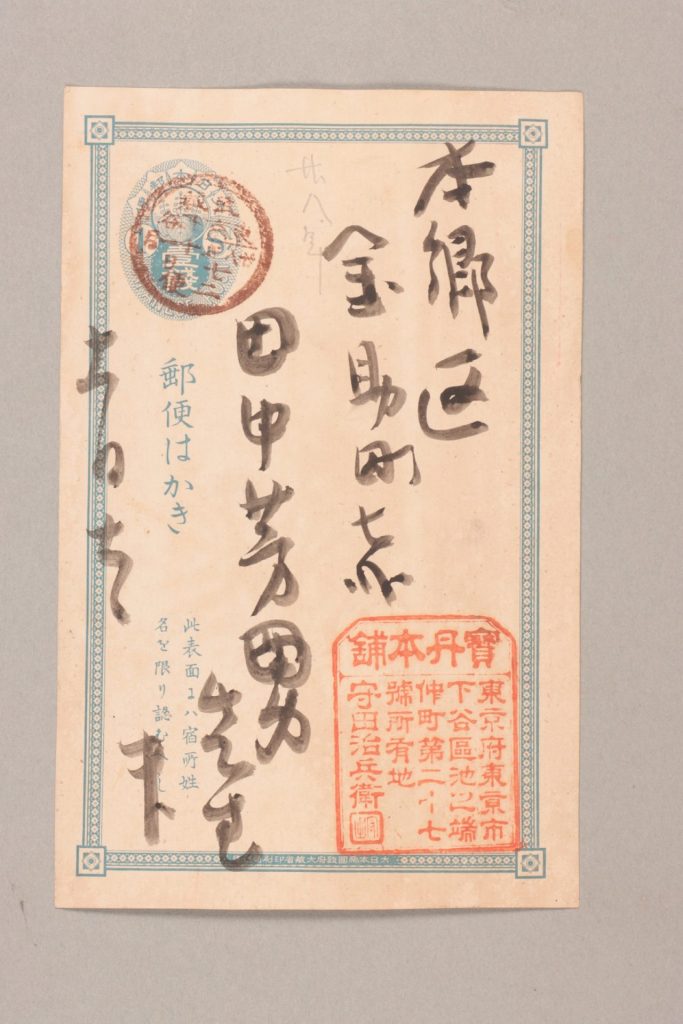 本郷区
金助町
田中芳男
先生
廿八年
壹錢
郵便はかき
此表面ヱハ宿所姓
名を限り認むへし
寶丹本舗
東京府東京市
下谷區池之端
仲町第二十七
號所有地
守田治兵衛
大日本帝國政府大藏省印刷局製造